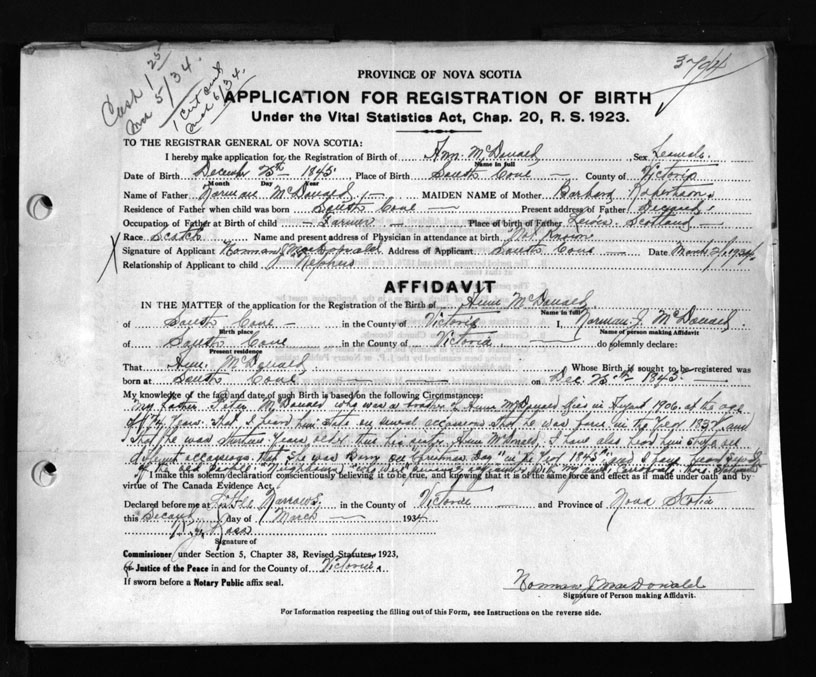 Cash 1 25
Mar 5/34.
1 Cert sent
Mar 6/34.
3794
PROVINCE OF NOVA SCOTIA
APPLICATION FOR REGISTRATION OF BIRTH
Under the Vital Statistics Act, Chap. 20, R. S. 1923.
TO THE REGISTRAR GENERAL OF NOVA SCOTIA:
I hereby make application for the Registration of Birth of Ann McDonald Sex Female.
Name in full
Date of Birth December 25th 1845 Place of Birth South Cove County of Victoria
Month Day Year
Name of Father Norman McDonald MAIDEN NAME of Mother Barbara Robertson
Residence of Father when child was born South Cove Present address of Father Deceased
Occupation of Father at Birth of child Farmer Place of birth of Father Lewis Scotland
Race Scotch Name and present address of Physician in attendance at birth Not Known
X Signature of Applicant Norman J MacDonald Address of Applicant South Cove Date March 2/1934
Relationship of Applicant to child Nephew
AFFIDAVIT
IN THE MATTER of the application for the Registration of the Birth of Anne McDonald
Name in full
of South Cove in the County of Victoria I, Norman J. McDonald.
Birth place Name of person making Affidavit
of South Cove in the County of Victoria do solemnly declare:
Present residence
That Ann McDonald Whose Birth is sought to be registered was
born at South Cove on Dec 25th 1845
My knowledge of the fact and date of such Birth is based on the following Circumstances:
My Father Peter McDonald who was a brother of Anne McDonald died in August 1906 at the age
of Years. That I heard him state on several occasions that he was born in the Year and
that he was Years older than his sister Ann McDonald, I have also heard him on
different occasions that she was Born on Christmas Day in the Year 1845 and I have heard
of the
I make this solemn declaration conscientiously believing it to be true, and knowing that it is of the same force and effect as if made under oath and by
virtue of The Canada Evidence Act.
Declared before me at Little Narrows in the County of Victoria and Province of Nova Scotia
this Second day of March 1934
Ross
Signature of
Commissioner under Section 5, Chapter 38, Revised Statutes, 1923,
Justice of the Peace in and for the County of Victoria
If sworn before a Notary Public affix seal.
Norman J MacDonald
Signature of Person making Affidavit.
For Information respecting the filling out of this Form, see Instructions on the reverse side.